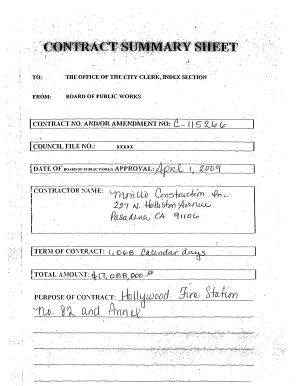 CONTRACT SUMMARY SHEET
TO: THE OFFICE OF THE CITY CLERK, INDEX SECTION
FROM: BOARD OF PUBLIC WORKS
CONTRACT NO. AND/OR AMENDMENT NO: C-115266
COUNCIL FILE NO.: xxxxx
DATE OF BOARD OF PUBLIC WORKS APPROVAL: April 1, 2009
CONTRACTOR NAME: Morillo Construction, Inc.
227 N. Holliston Avenue
Pasadena, CA 91106
TERM OF CONTRACT: 1,068 Calendar days
TOTAL AMOUNT: $17,088,000.00
PURPOSE OF CONTRACT: Hollywood Fire Station
No. 82 and Annex